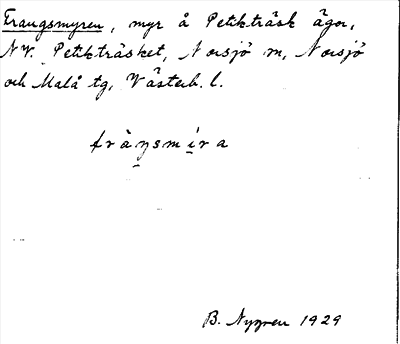 Traugsmyren, myr å Petikträsk ägor,
NV. Petikträsket, Norsjö sn, Norsjö
och Malå tg, Västerb. l.
B. Nygren 1929